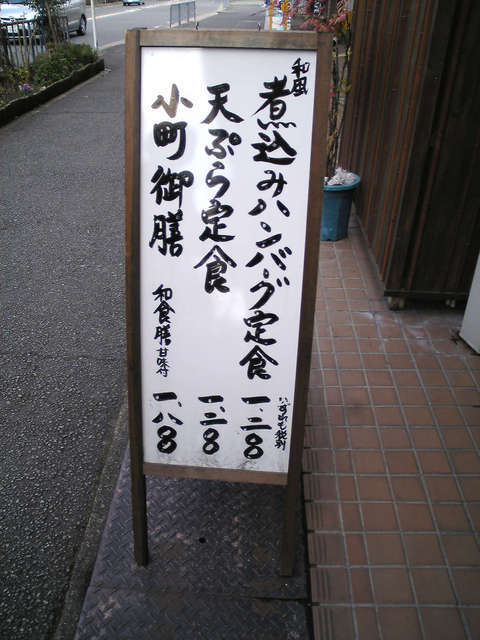 和風
煮込みハンバーグ定食
一、二〇
いずれも税別
天ぷら定食
一、三〇
小町御膳
和食膳
甘味付
一、八〇